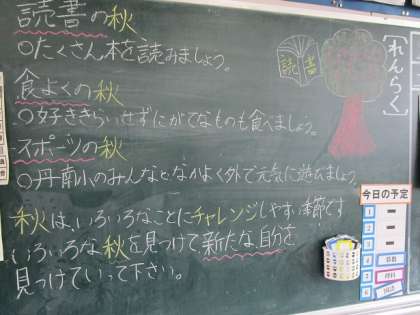 読書の秋
○たくさん本を読みましょう。
食よくの秋
○好ききらいせずにがてなものも食べましょう。
スポーツの秋
○丹南小のみんなとなかよく外で元気に遊びましょう
秋は、いろいろなことにチャレンジしやすい季節です
いろいろな秋を見つけて新たな自分を
見つけていって下さい。
読書
[れんらく]
今日の予定
1
2
3
4
5
6